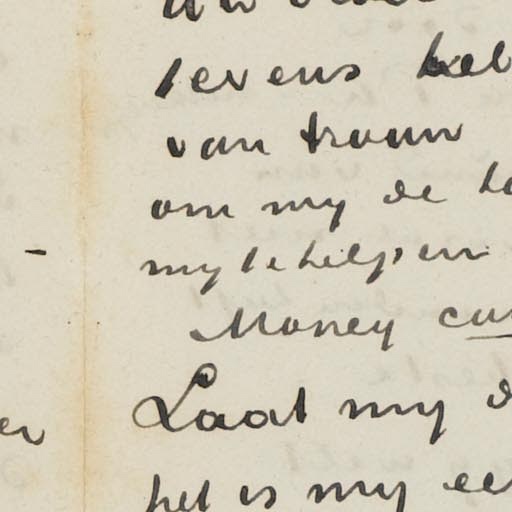 tevens heb
van trouw
om my de
my te helpen
Money
Laat my
het is my
er